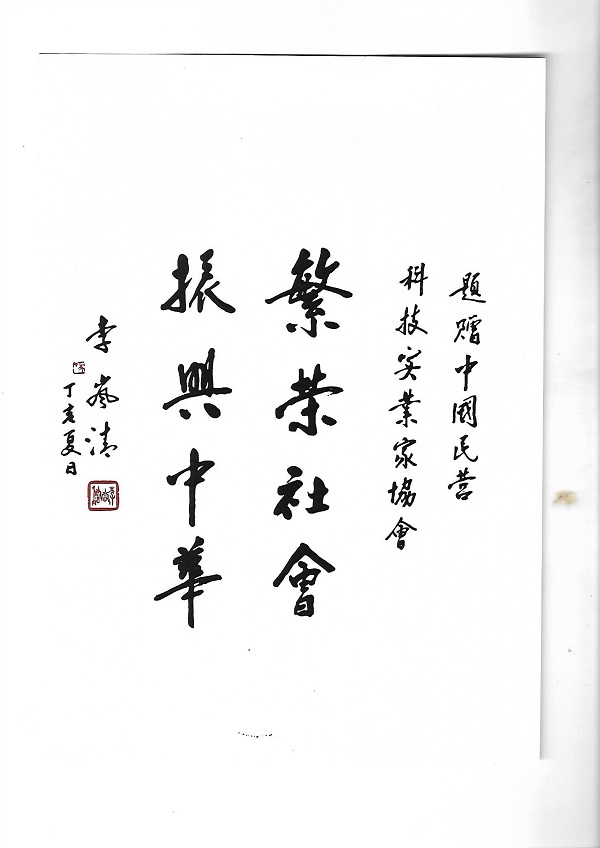 題贈中國民营
科技实業家協會
繁荣社會
振興中華
李嵐清
丁亥夏日